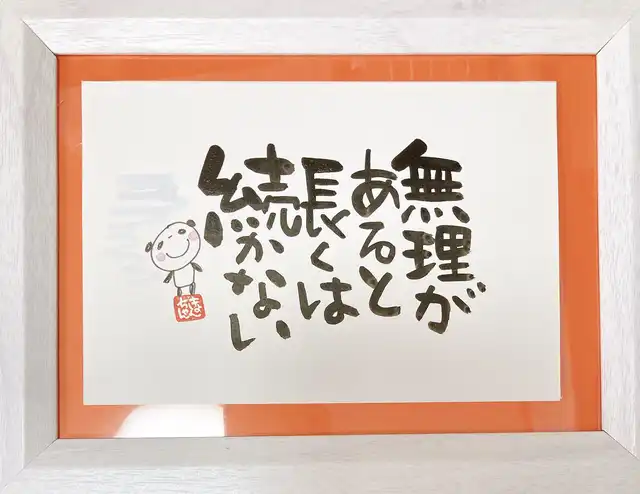 無理が
あると
長くは
続かない